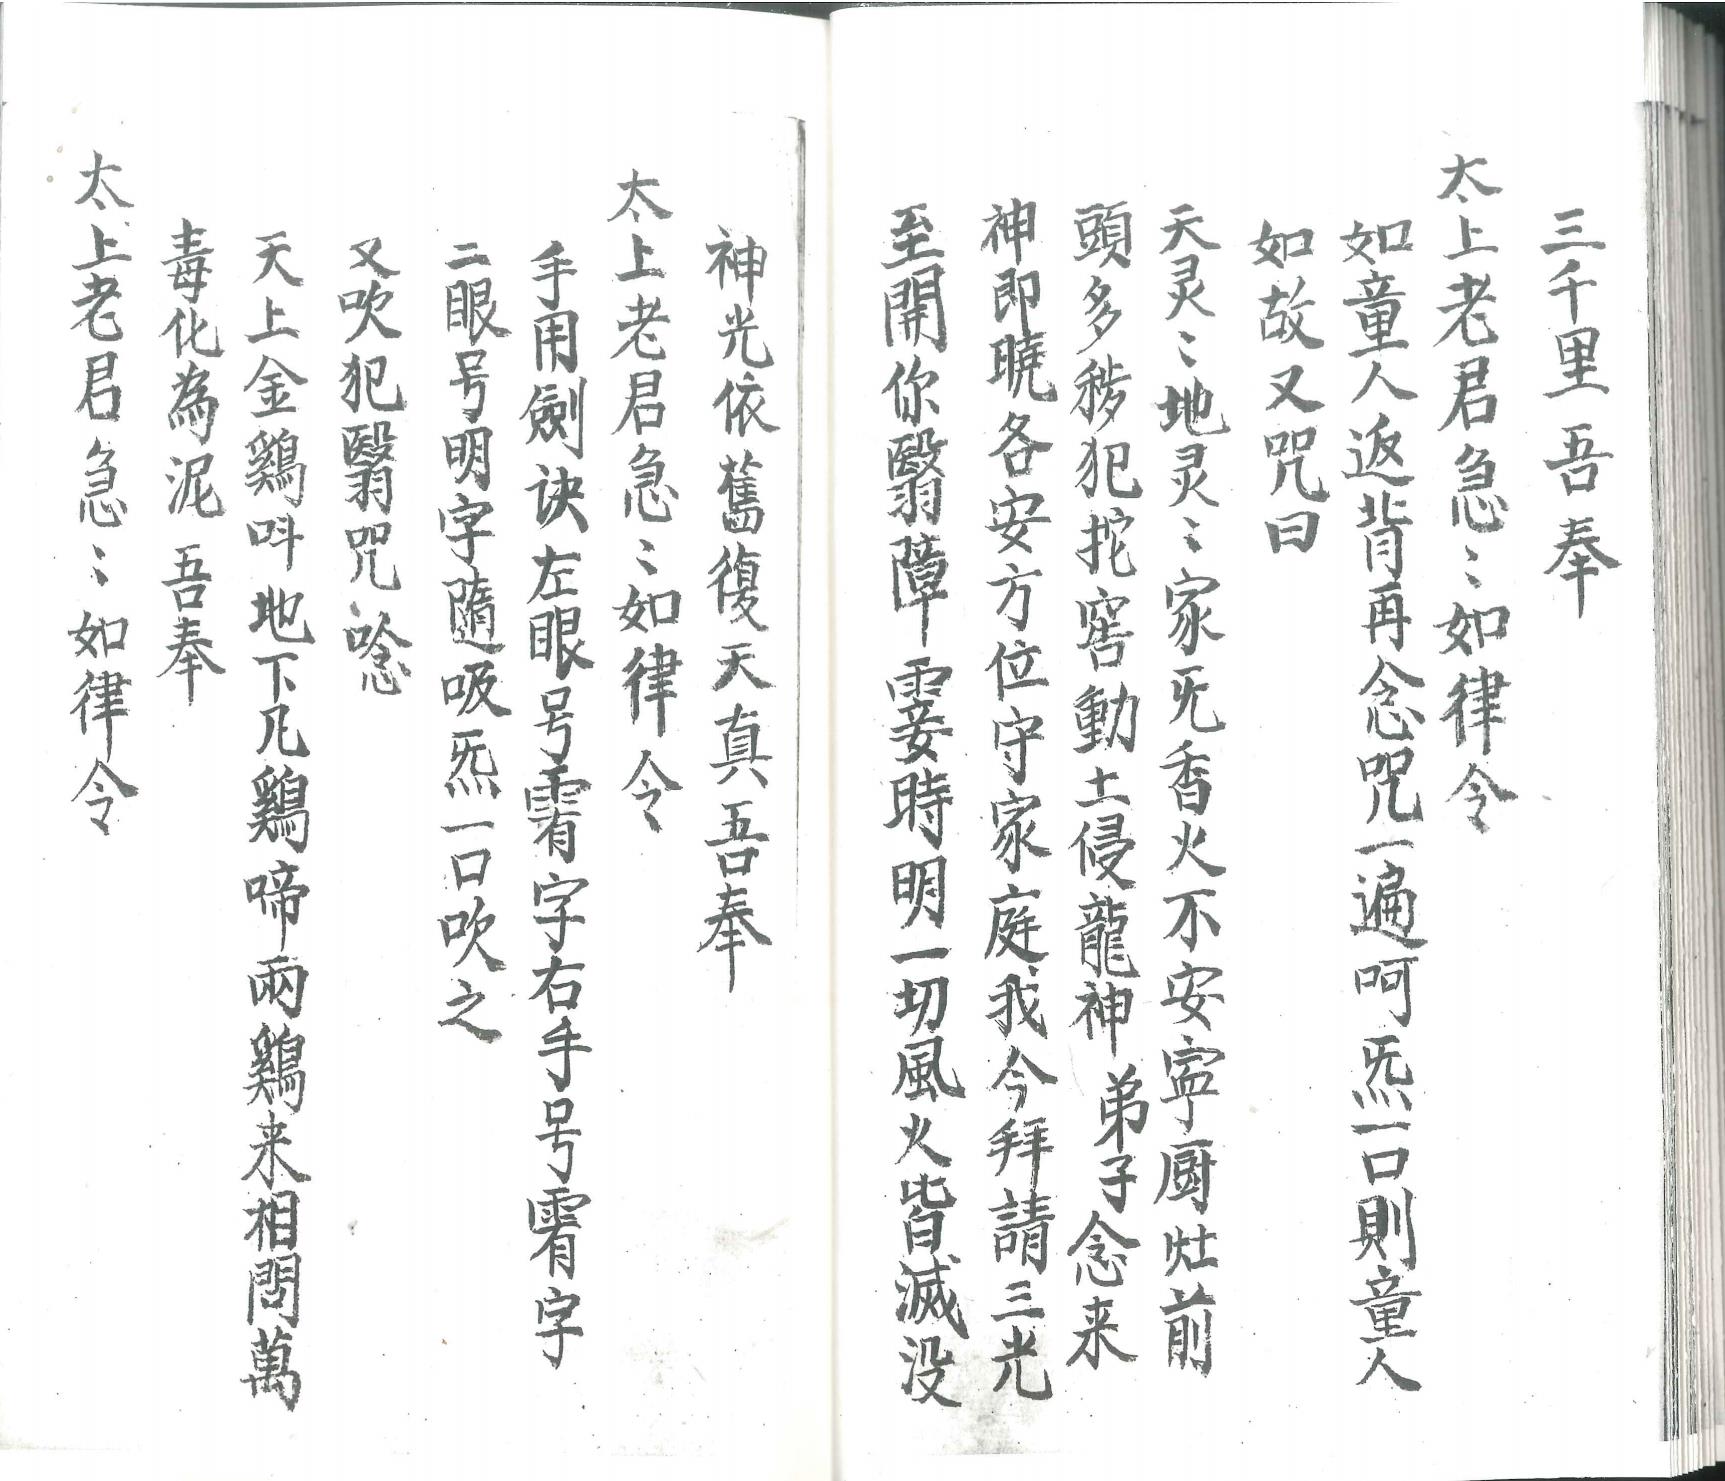 三千里吾奉
太上老君急〻如律令
如童人返背再念咒一遍呵炁一口則童人
如故又咒曰
天灵〻地灵〻家旡香火不安寧厨灶前
頭多穢犯挖窖動土侵龍神弟子念来
神即曉各安方位守家庭我今拜請三光
至開你翳障霎時明一切風火皆滅没
神光依舊復天真吾奉
太上老君急〻如律令
手用劍诀左眼号䨖字右手号䨖字
二眼号明字隨吸炁一口吹之
又吹犯翳咒唸
天上金鷄呌地下凡鷄啼兩鷄来相閗萬
毒化為泥吾奉
太上老君急〻如律令